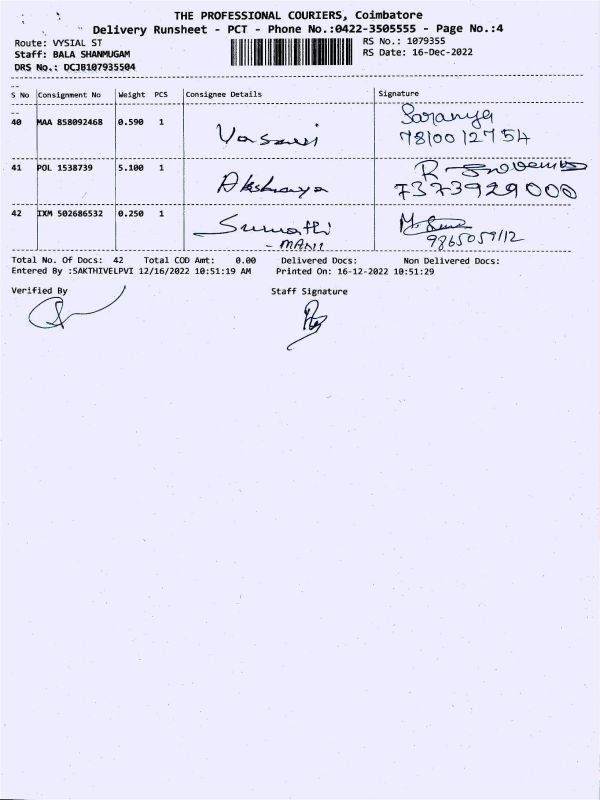 THE PROFESSIONAL COURIERS, Coimbatore
Delivery Runsheet - PCT - Phone No.:0422-3505555 - Page No.:4
Route: VYSIAL ST RS No.: 1079355
Staff: BALA SHANMUGAM RS Date: 16-Dec-2022
DRS No.: DCJB107935504
S No Consignment No Weight PCS Consignee Details Signature
40 MAA 858092468 0.590 1 Vasavi Saranya
7810012754
41 POL 1538739 5.100 1 Akshaya R
7373929000
42 IXM 502686532 0.250 1 Sumathi
- MANI 9865059112
Total No. Of Docs: 42 Total COD Amt: 0.00 Delivered Docs: Non Delivered Docs:
Entered By :SAKTHIVELPVI 12/16/2022 10:51:19 AM Printed On: 16-12-2022 10:51:29
Verified By Staff Signature